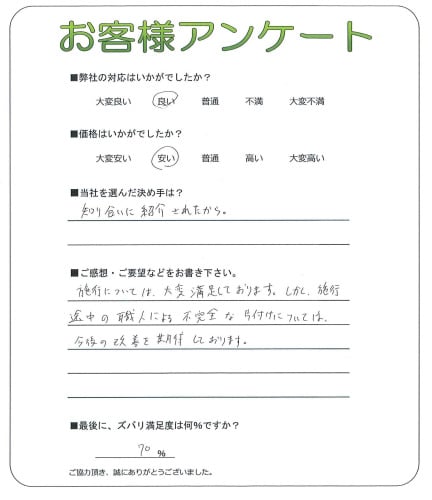 お客様アンケート
■弊社の対応はいかがでしたか？
大変良い 良い 普通 不満 大変不満
■価格はいかがでしたか？
大変安い 安い 普通 高い 大変高い
■当社を選んだ決め手は？
知り合いに紹介されたから。
■ご感想・ご要望などをお書き下さい。
施行については、大変満足しております。しかし、施行
途中の職人による不完全な片付けについては、
今後の改善を期待しております。
■最後に、ズバリ満足度は何％ですか？
70 ％
ご協力頂き、誠にありがとうございました。